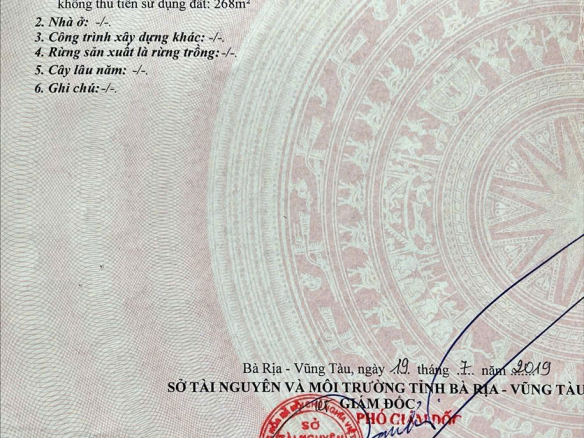 không thu tiền sử dụng đất: 268m²
2. Nhà ở: -/-.
3. Công trình xây dựng khác: -/-.
4. Rừng sản xuất là rừng trồng: -/-.
5. Cây lâu năm: -/-.
6. Ghi chú: -/-.
Bà Rịa - Vũng Tàu, ngày 19 tháng 7 năm 2019
SỞ TÀI NGUYÊN VÀ MÔI TRƯỜNG TỈNH BÀ RỊA - VŨNG TÀU
GIÁM ĐỐC
PHÓ GIÁM ĐỐC
SỞ
TÀI NGUYÊN